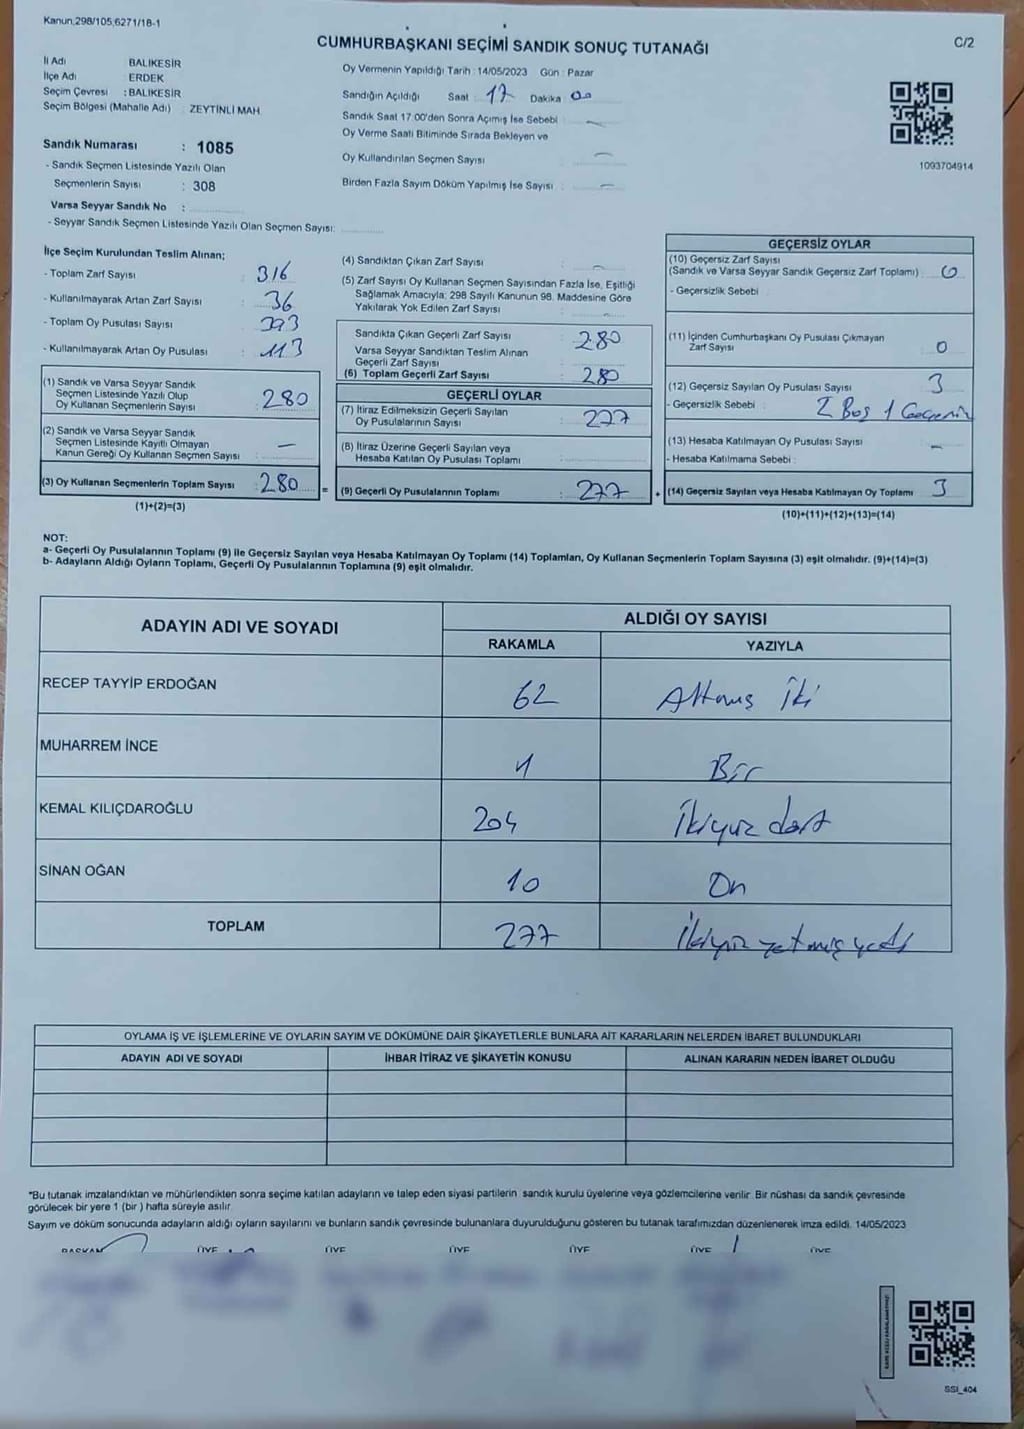 Kanun,298/105,6271/18-1
C/2
CUMHURBAŞKANI SEÇİMİ SANDIK SONUÇ TUTANAĞI
İl Adı BALIKESİR
İlçe Adı ERDEK
Seçim Çevresi : BALIKESİR
Seçim Bölgesi (Mahalle Adı) : ZEYTİNLİ MAH.
Sandık Numarası : 1085
- Sandık Seçmen Listesinde Yazılı Olan
Seçmenlerin Sayısı : 308
Varsa Seyyar Sandık No :
- Seyyar Sandık Seçmen Listesinde Yazılı Olan Seçmen Sayısı:
Oy Vermenin Yapıldığı Tarih : 14/05/2023 Gün : Pazar
Sandığın Açıldığı Saat 17 Dakika 00
Sandık Saat 17.00'den Sonra Açımış İse Sebebi : -
Oy Verme Saati Bitiminde Sırada Bekleyen ve
Oy Kullandırılan Seçmen Sayısı : -
Birden Fazla Sayım Döküm Yapılmış İse Sayısı : -
1093704914
İlçe Seçim Kurulundan Teslim Alınan;
- Toplam Zarf Sayısı : 316
- Kullanılmayarak Artan Zarf Sayısı : 36
- Toplam Oy Pusulası Sayısı :
- Kullanılmayarak Artan Oy Pusulası : 113
(1) Sandık ve Varsa Seyyar Sandık
Seçmen Listesinde Yazılı Olup
Oy Kullanan Seçmenlerin Sayısı : 280
(2) Sandık ve Varsa Seyyar Sandık
Seçmen Listesinde Kayıtlı Olmayan
Kanun Gereği Oy Kullanan Seçmen Sayısı : -
(3) Oy Kullanan Seçmenlerin Toplam Sayısı : 280
(1)+(2)=(3)
(4) Sandıktan Çıkan Zarf Sayısı : -
(5) Zarf Sayısı Oy Kullanan Seçmen Sayısından Fazla İse, Eşitliği
Sağlamak Amacıyla; 298 Sayılı Kanunun 98. Maddesine Göre
Yakılarak Yok Edilen Zarf Sayısı : -
Sandıkta Çıkan Geçerli Zarf Sayısı : 280
Varsa Seyyar Sandıktan Teslim Alınan
Geçerli Zarf Sayısı :
(6) Toplam Geçerli Zarf Sayısı : 280
GEÇERLİ OYLAR
(7) İtiraz Edilmeksizin Geçerli Sayılan
Oy Pusulalarının Sayısı : 277
(8) İtiraz Üzerine Geçerli Sayılan veya
Hesaba Katılan Oy Pusulası Toplamı :
= (9) Geçerli Oy Pusulalarının Toplamı : 277
GEÇERSİZ OYLAR
(10) Geçersiz Zarf Sayısı
(Sandık ve Varsa Seyyar Sandık Geçersiz Zarf Toplamı) : 0
- Geçersizlik Sebebi :
(11) İçinden Cumhurbaşkanı Oy Pusulası Çıkmayan
Zarf Sayısı : 0
(12) Geçersiz Sayılan Oy Pusulası Sayısı : 3
- Geçersizlik Sebebi : 2 Boş 1 Geçersiz
(13) Hesaba Katılmayan Oy Pusulası Sayısı : -
- Hesaba Katılmama Sebebi :
+ (14) Geçersiz Sayılan veya Hesaba Katılmayan Oy Toplamı : 3
(10)+(11)+(12)+(13)=(14)
NOT:
a- Geçerli Oy Pusulalarının Toplamı (9) ile Geçersiz Sayılan veya Hesaba Katılmayan Oy Toplamı (14) Toplamları, Oy Kullanan Seçmenlerin Toplam Sayısına (3) eşit olmalıdır. (9)+(14)=(3)
b- Adayların Aldığı Oyların Toplamı, Geçerli Oy Pusulalarının Toplamına (9) eşit olmalıdır.
ADAYIN ADI VE SOYADI
ALDIĞI OY SAYISI
RAKAMLA YAZIYLA
RECEP TAYYİP ERDOĞAN 62 Altmış İki
MUHARREM İNCE 1 Bir
KEMAL KILIÇDAROĞLU 204 İkiyüz dört
SİNAN OĞAN 10 On
TOPLAM 277 İkiyüz yetmiş yedi
OYLAMA İŞ VE İŞLEMLERİNE VE OYLARIN SAYIM VE DÖKÜMÜNE DAİR ŞİKAYETLERLE BUNLARA AİT KARARLARIN NELERDEN İBARET BULUNDUKLARI
ADAYIN ADI VE SOYADI İHBAR İTİRAZ VE ŞİKAYETİN KONUSU ALINAN KARARIN NEDEN İBARET OLDUĞU
*Bu tutanak imzalandıktan ve mühürlendikten sonra seçime katılan adayların ve talep eden siyasi partilerin sandık kurulu üyelerine veya gözlemcilerine verilir. Bir nüshası da sandık çevresinde
görülecek bir yere 1 (bir ) hafta süreyle asılır.
Sayım ve döküm sonucunda adayların aldığı oyların sayılarını ve bunların sandık çevresinde bulunanlara duyurulduğunu gösteren bu tutanak tarafımızdan düzenlenerek imza edildi. 14/05/2023
BAŞKAN ÜYE ÜYE ÜYE ÜYE ÜYE ÜYE
SSI_404